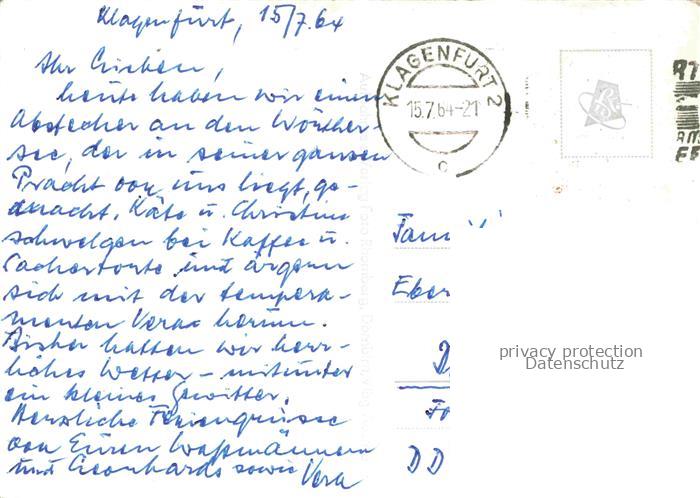 Klagenfurt, 15/7.64
Ihr Lieben,
heute haben wir einen
Abstecher an den Wörther-
see, der in seiner ganzen
Pracht vor uns liegt, ge-
macht. Käte u. Christine
schwelgen bei Kaffee u.
Sachertorte und ärgern
sich mit der tempera-
menten Vera herum.
Bisher hatten wir herr-
liches Wetter – mitunter
ein kleines Gewitter.
Herzliche Feriengrüsse
von Euren Waßmännern
und Leonhards sowie Vera
KLAGENFURT 2
15.7.64-21
c
Fam
Eber
D
Fo
DD
privacy protection
Datenschutz